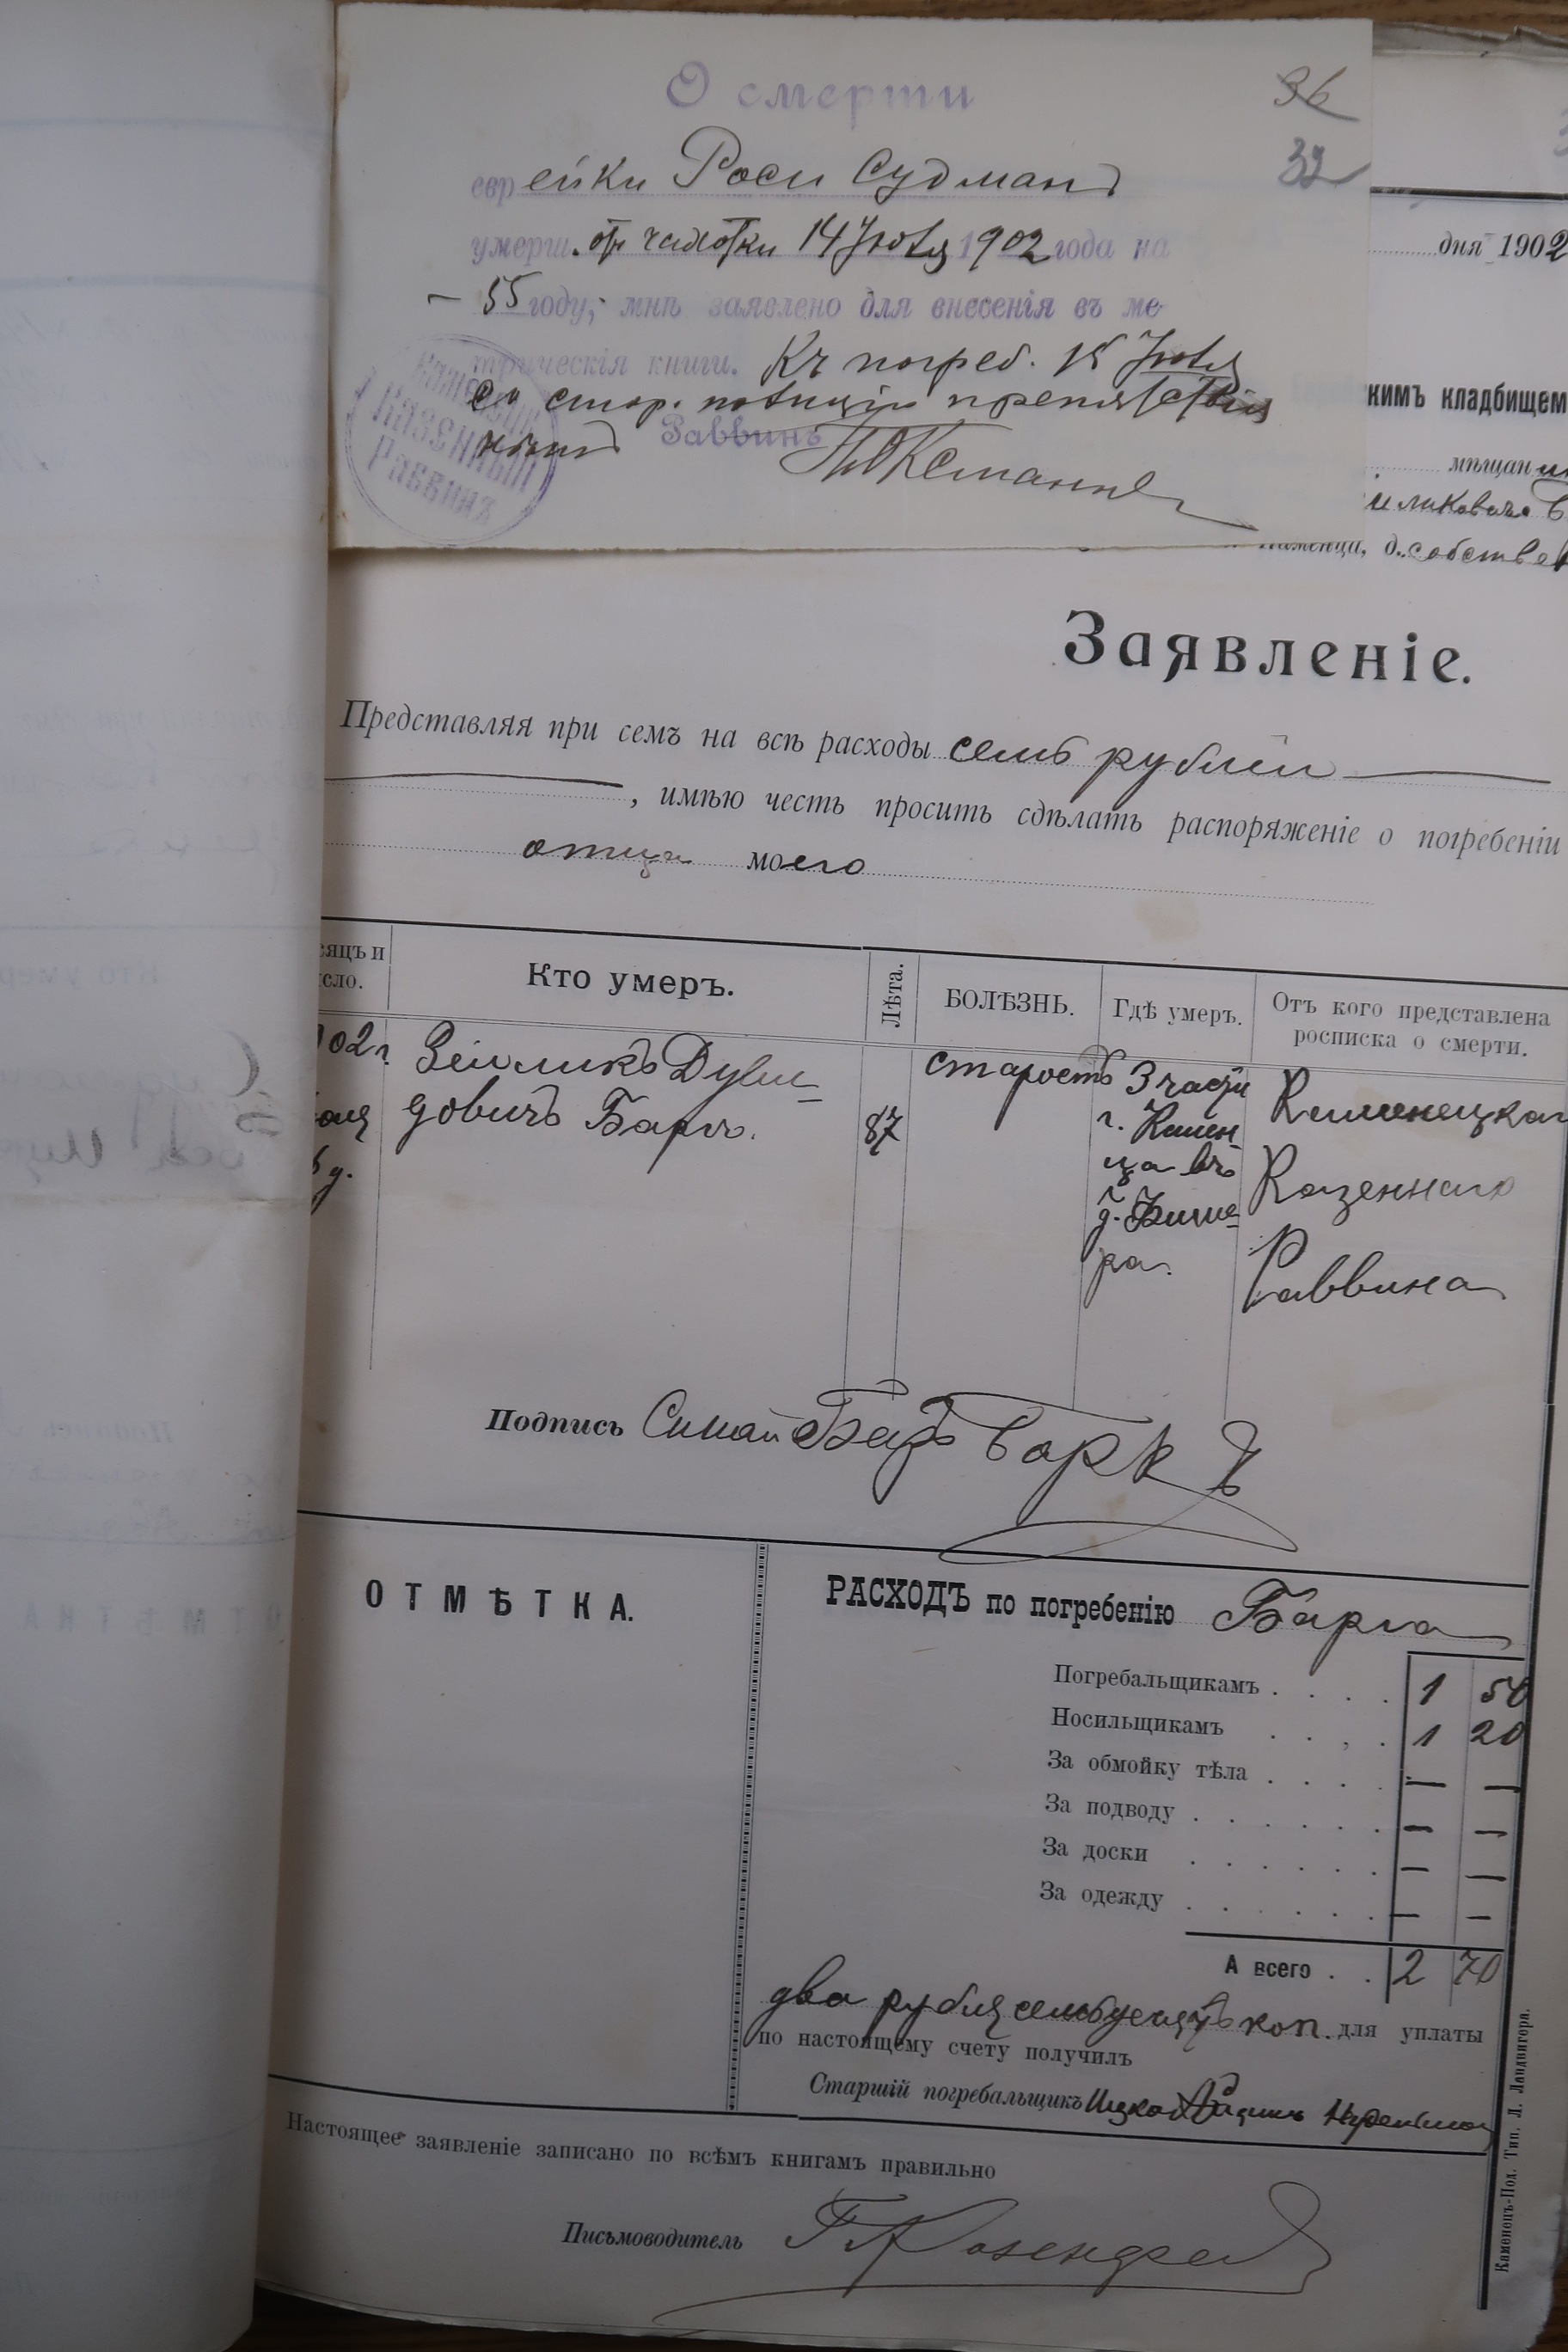 О смерти
36
32
еврейки Роси Судманъ
умерш. отъ чахотки 14 Іюля 1902 года на
55 году, мнѣ заявлено для внесенія въ ме
трическія книги. Къ погреб. 15 Іюля
со стор. полиціи препятствія
нѣтъ Раввинъ
КАЗЕННЫЙ
РАВВИНЪ
дня 1902
кимъ кладбищем
мѣщан
Каменца, д. собстве
Заявленіе.
Представляя при семъ на всѣ расходы семь рублей
, имѣю честь просить сдѣлать распоряженіе о погребеніи
отца моего
сяцъ и
сло.
Кто умеръ.
Лѣта.
БОЛѢЗНЬ.
Гдѣ умеръ.
Отъ кого представлена
росписка о смерти.
02 г.
Зейликъ Дуви-
довичъ Баръ.
87
старость
3 части
г. Камен-
ца въ
д.
ра.
Каменецкаго
Казеннаго
Раввина
Подпись Синай
ОТМѢТКА.
РАСХОДЪ по погребенію Барга
Погребальщикамъ . . . . 1 50
Носильщикамъ . . . 1 20
За обмойку тѣла . . . . — —
За подводу . . . . . . — —
За доски . . . . . . — —
За одежду . . . . . . — —
А всего . . 2 70
два рубля семьдесятъ коп. для уплаты
по настоящему счету получилъ
Старшій погребальщикъ Ицко
Настоящее заявленіе записано по всѣмъ книгамъ правильно
Письмоводитель
Каменецъ-Под. Тип. Л. Ландвигера.